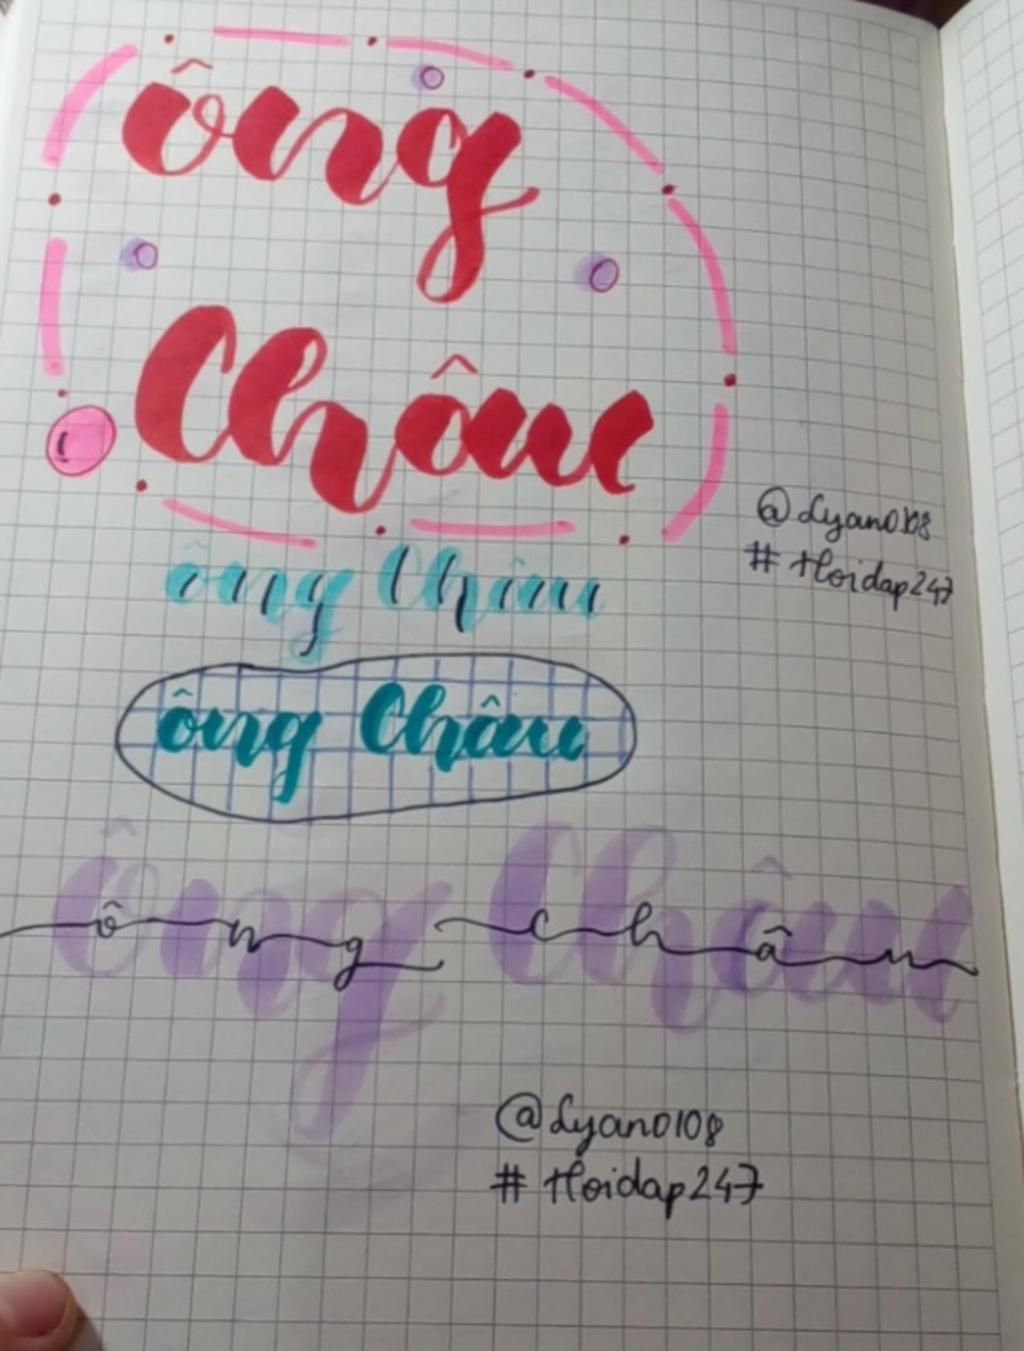 ông
Châu
@Lyan0108
# Hoidap247
ông Châu
ông Châu
ông Châu
ông châu
@Lyan0108
# Hoidap247